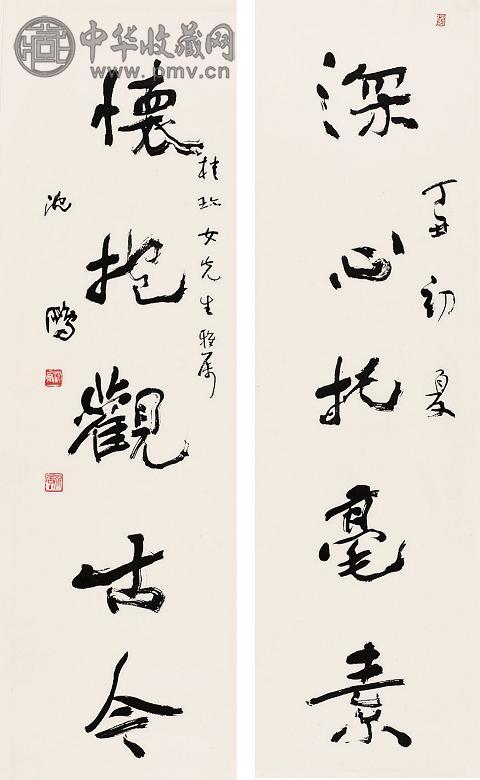 中华收藏网
www.pmv.cn
丁丑初夏
深心托毫素
懷抱觀古今
桂珍女先生雅属
沈鵬